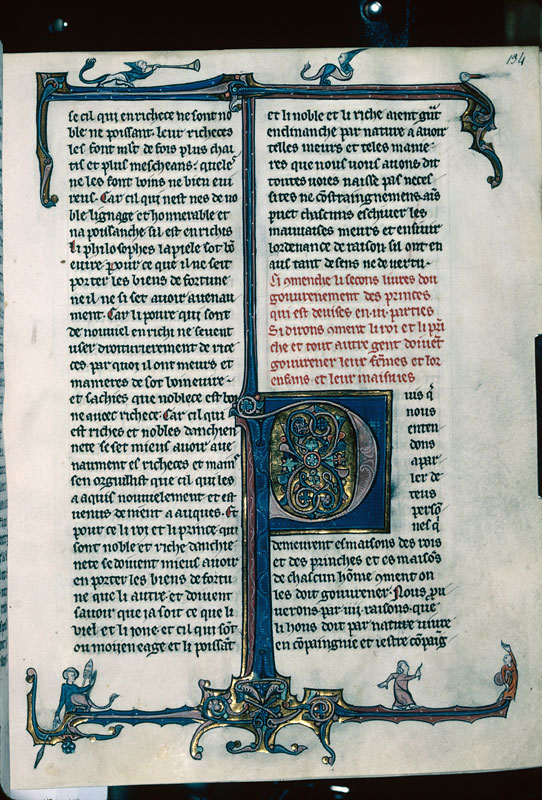 134
se cil qui enrichece ne sont no
ble ne poissant leur richeces
les font mlt de fois plus chai
tis et plus mescheans. quele
ne les font boins ne bien eu
reus. Car cil qui nest nes de no
ble lignage et honnerable et
na poissanche sil est enrichis
li philosophes lapiele sot bō
eure pour ce que il ne seit
porter les biens de fortune
ne il ne si set avoir avenau
ment. Car li povre qui sont
de nouviel enrichi ne sevent
user droiturierement de rice
ces par quoi il ont meurs et
manieres de sot boineure.
et sachies que noblece est bon
ne avoec richece. Car cil qui
est riches et nobles danchien
nete se set mieus avoir ave
naument es richeces et mains
sen orguillist que cil qui les
a aquis nouvielement et est
venus de nient a auques. Et
pour ce li roi et li prince qui
sont noble et riche danchie
nete se doivent mieus avoir
en porter les biens de fortu
ne que li autre et doivent
savoir que ja soit ce que li
viel et li jone et cil qui sōt
ou moijen eage et li poissāt
et li noble et li riche aient
enclinanche par nature a avoir
telles meurs et teles manie
res que nous vous avons dit
toutes vores naisse pas neces
sites ne cōstraingnemens ains
puet chascuns eschuer les
mauvaises meurs et ensivir
lordenance de raison sil ont en
aus tant de sens ne de vertu.
Si cmenche li secons livres dou
gouvrenement des princes
qui est devises en .iii. parties
Si dirons cment li roi et li prī
che et tout autre gent doivēt
gouvrener leur fēmes et lor
enfans et leur maisnies
uis q̄
nous
enten
dons
a par
ler de
ceus
persō
nes q̄
demeurent es maisons des rois
et des prinches et es maisōs
de chascun hōme cment on
les doit gouvrener. Nous pru
verons par .iiii. raisons que
li hons doit par nature vivre
en cōpaingnie et iestre cōpaig